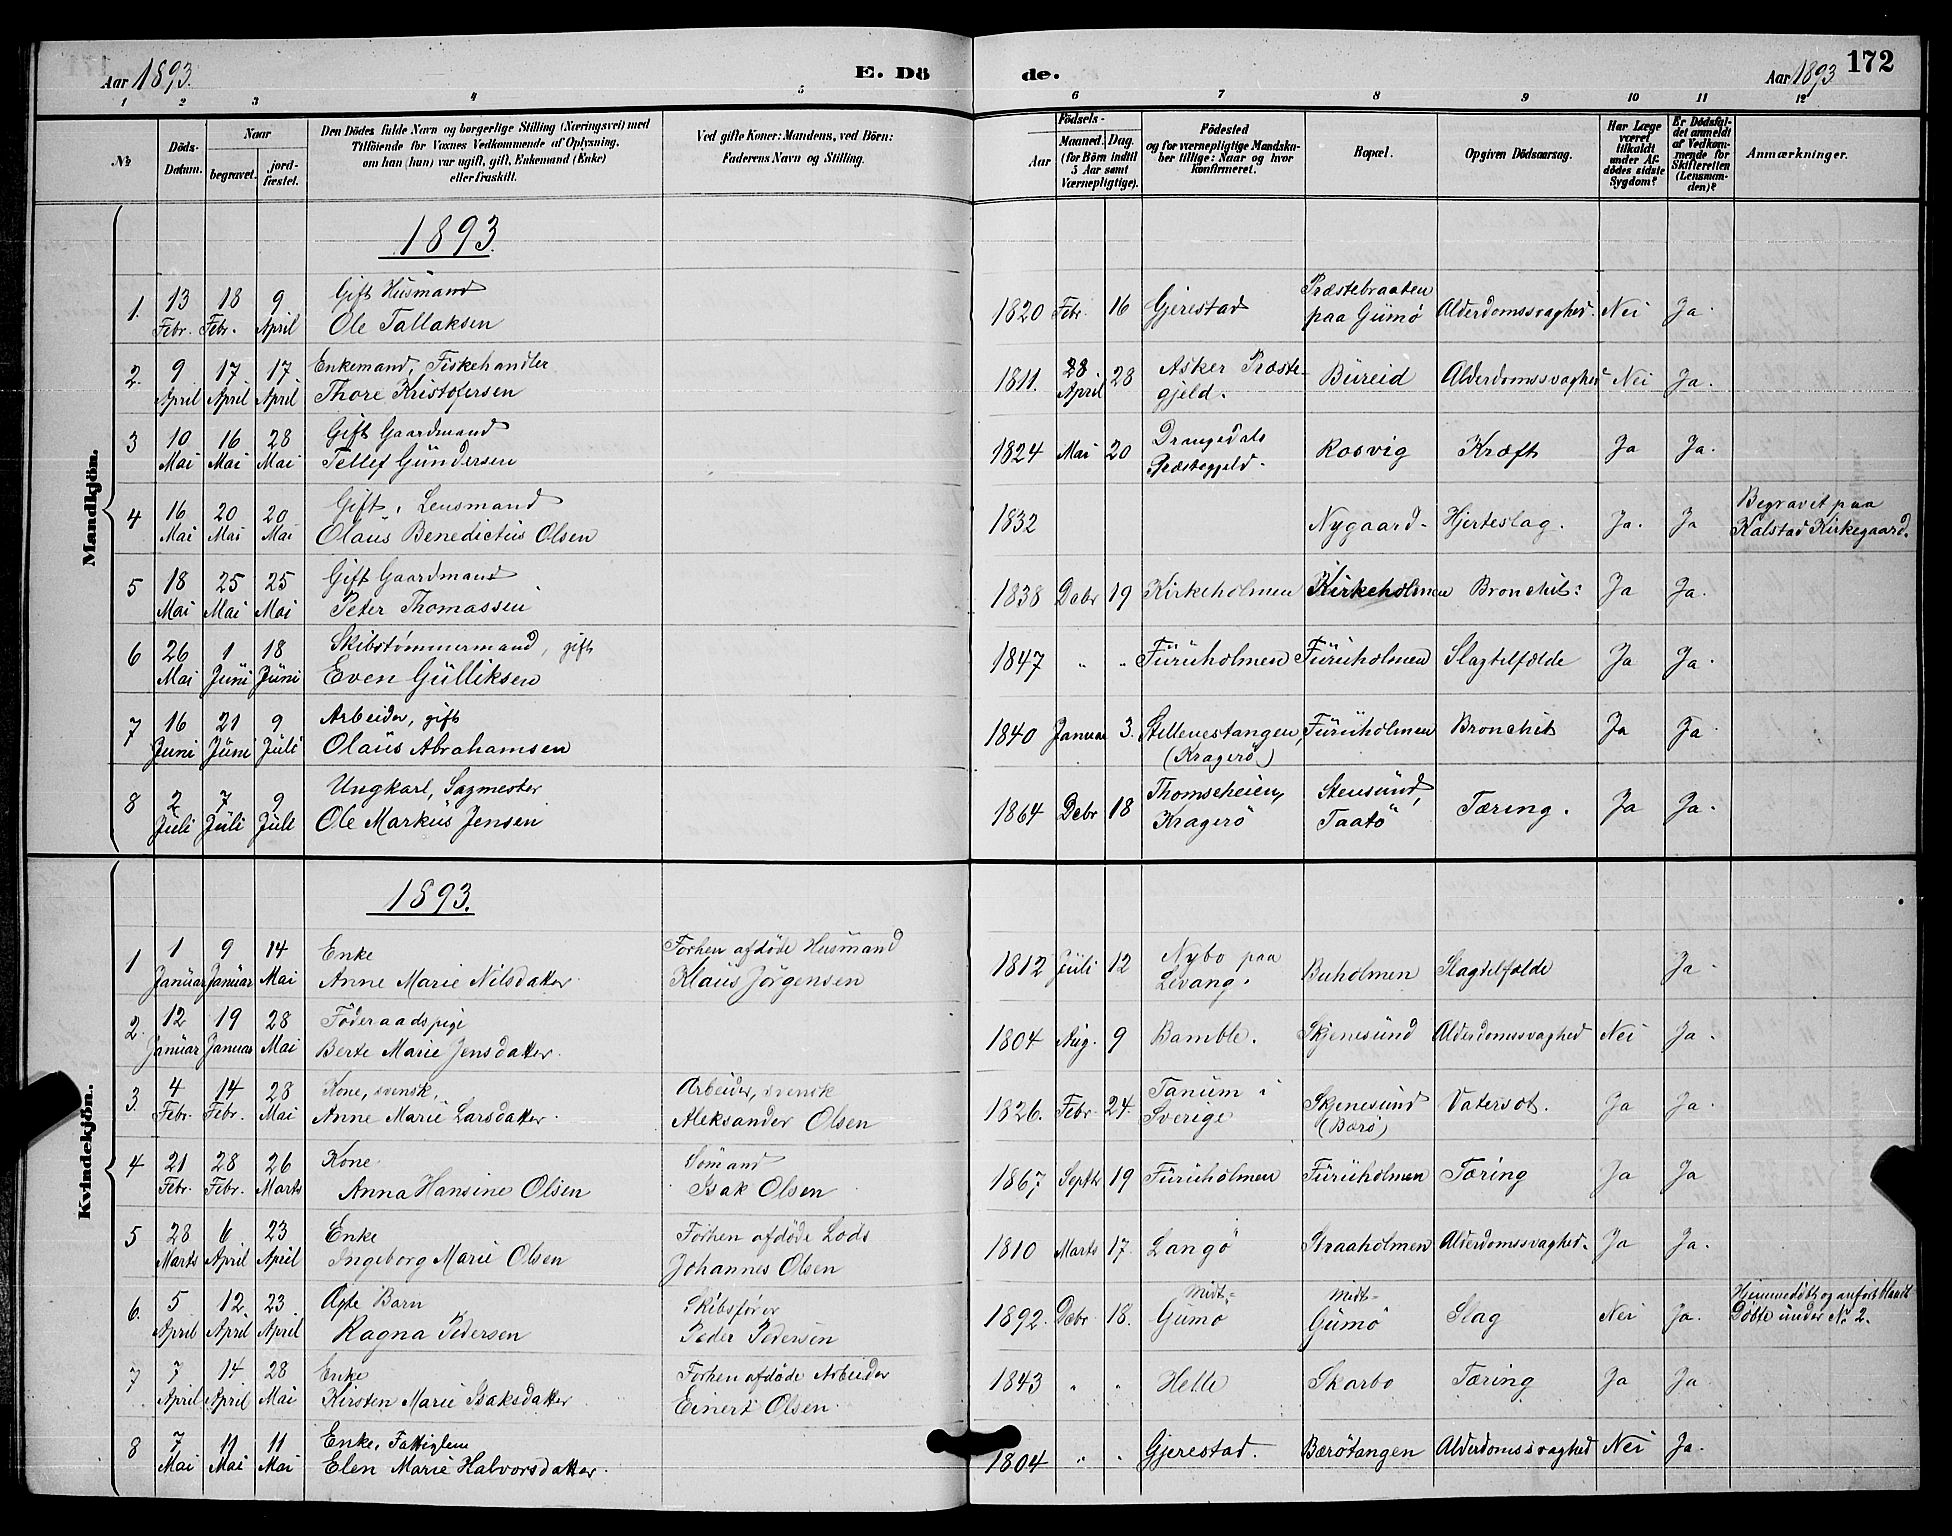 Aar 1893.
E. Dö
de.
Aar 1893
172
1 2 3 4 5 6 7 8 9 10 11 12
No
Döds-Datum.
Naar
begravet.
jord-fæstet.
Den Dödes fulde Navn og borgerlige Stilling (Næringsvei) med
Tilföiende for Voxnes Vedkommende af Oplysning,
om han (hun) var ugift, gift, Enkemand (Enke)
eller fraskilt.
Ved gifte Koner: Mandens, ved Börn:
Faderens Navn og Stilling.
Födsels-
Aar
Maaned. Dag.
(for Börn indtil
5 Aar samt
Værnepligtige).
Födested
og for værnepligtige Mandska-
ber tillige: Naar og hvor
konfirmeret.
Bopæl.
Opgiven Dödsaarsag.
Har Læge
været
tilkaldt
under Af-
dödes sidste
Sygdom?
Er Dödsfal-
det anmeldt
af Vedkom-
mende for
Skifteretten
(Lensman-
den)?
Anmærkninger.
Mandkjön.
1893.
1. 13 Febr. 18 Febr. 9 April Gift Husmand
Ole Tallaksen
1820 Febr. 16 Gjerestad Præstebraaten paa Gumö Alderdomssvaghed. Nei Ja.
2. 9 April 17 April 17 April Enkemand, Fiskehandler
Thore Kristofersen
1811. 28 April 28 Asker Præste-gjeld. Bureid Alderdomssvaghed Nei Ja.
3 10 Mai 16 Mai 28 Mai Gift Gaardmand
Tellef Gundersen
1824 Mai 20 Drangedals Præstegjeld. Rosvig Kræft Ja Ja.
4 16 Mai 20 Mai 20 Mai Gift, Lensmand
Olaus Benedictus Olsen
1832 Nygaard. Hjerteslag. Ja. Ja Begravet paa
Kalstad Kirkegaard.
5 18 Mai 25 Mai 25 Mai Gift Gaardmand
Peter Thomassen
1838 Debr 19 Kirkeholmen Kirkeholmen Bronchit: Ja Ja.
6 26 Mai 1 Juni 18 Juni Skibstömmermand, gift
Even Gulliksen
1847 " " Furuholmen Furuholmen Slagtilfælde Ja Ja.
7 16 Juni 21 Juni 9 Juli Arbeider, gift
Olaus Abrahamsen
1840 Januar 3. Stillenestangen, (Kragerö) Furuholmen Bronchit Ja Ja
8 2 Juli 7 Juli 9 Juli Ungkarl, Sagmester
Ole Markus Jensen
1864 Debr 18 Thomseheien, Kragerö Stensund, Taatö Tæring. Ja Ja.
Kvindekjön.
1893.
1 1 Januar 9 Januar 14 Mai Enke
Anne Marie Nilsdatter.
Forhen afdöde Husmand
Klaus Jörgensen
1812 Juli 12 Nybo paa Levang. Buholmen Slagtilfælde Ja.
2. 12 Januar 19 Januar 28 Mai Föderaadspige
Berte Marie Jensdatter.
1804 Aug. 9 Bamble. Skjenesund Alderdomssvaghed Nei Ja.
3. 4 Febr. 14 Febr. 28 Mai Kone, svensk,
Anne Marie Larsdatter.
Arbeider, svensk
Aleksander Olsen
1826. Febr. 24. Tanum i Sverige Skjenesund (Barö) Vatersot. Ja Ja.
4 21 Febr. 28 Febr. 26 Marts Kone
Anna Hansine Olsen
Sömand
Isak Olsen
1867 Septb 19 Furuholmen Furuholmen Tæring Ja Ja
5 28 Marts 6 April 23 April Enke
Ingeborg Marie Olsen
Forhen afdöde Lods
Johannes Olsen
1810 Marts 17. Langö Straaholmen Alderdomssvaghed. Ja Ja.
6. 5 April 12 April 23 April Ægte Barn
Ragna Pedersen
Skibsförer
Peder Pedersen
1892. Debr. 18. Midt-Gumö Midt-Gumö Slag Nei Ja. Hjemmedöbt og anfört blandt
Döbte under No 2.
7 7 April 14 April 28 Mai Enke
Kirsten Marie Isaksdatter
Forhen afdöde Arbeider
Einert Olsen.
1843 " " Helle Skarbo Tæring Ja Ja.
8 7 Mai 11 Mai 11 Mai Enke, Fattiglem
Elen Marie Halvorsdatter.
1804 " " Gjerestad. Bærötangen Alderdomssvaghed Nei Ja.